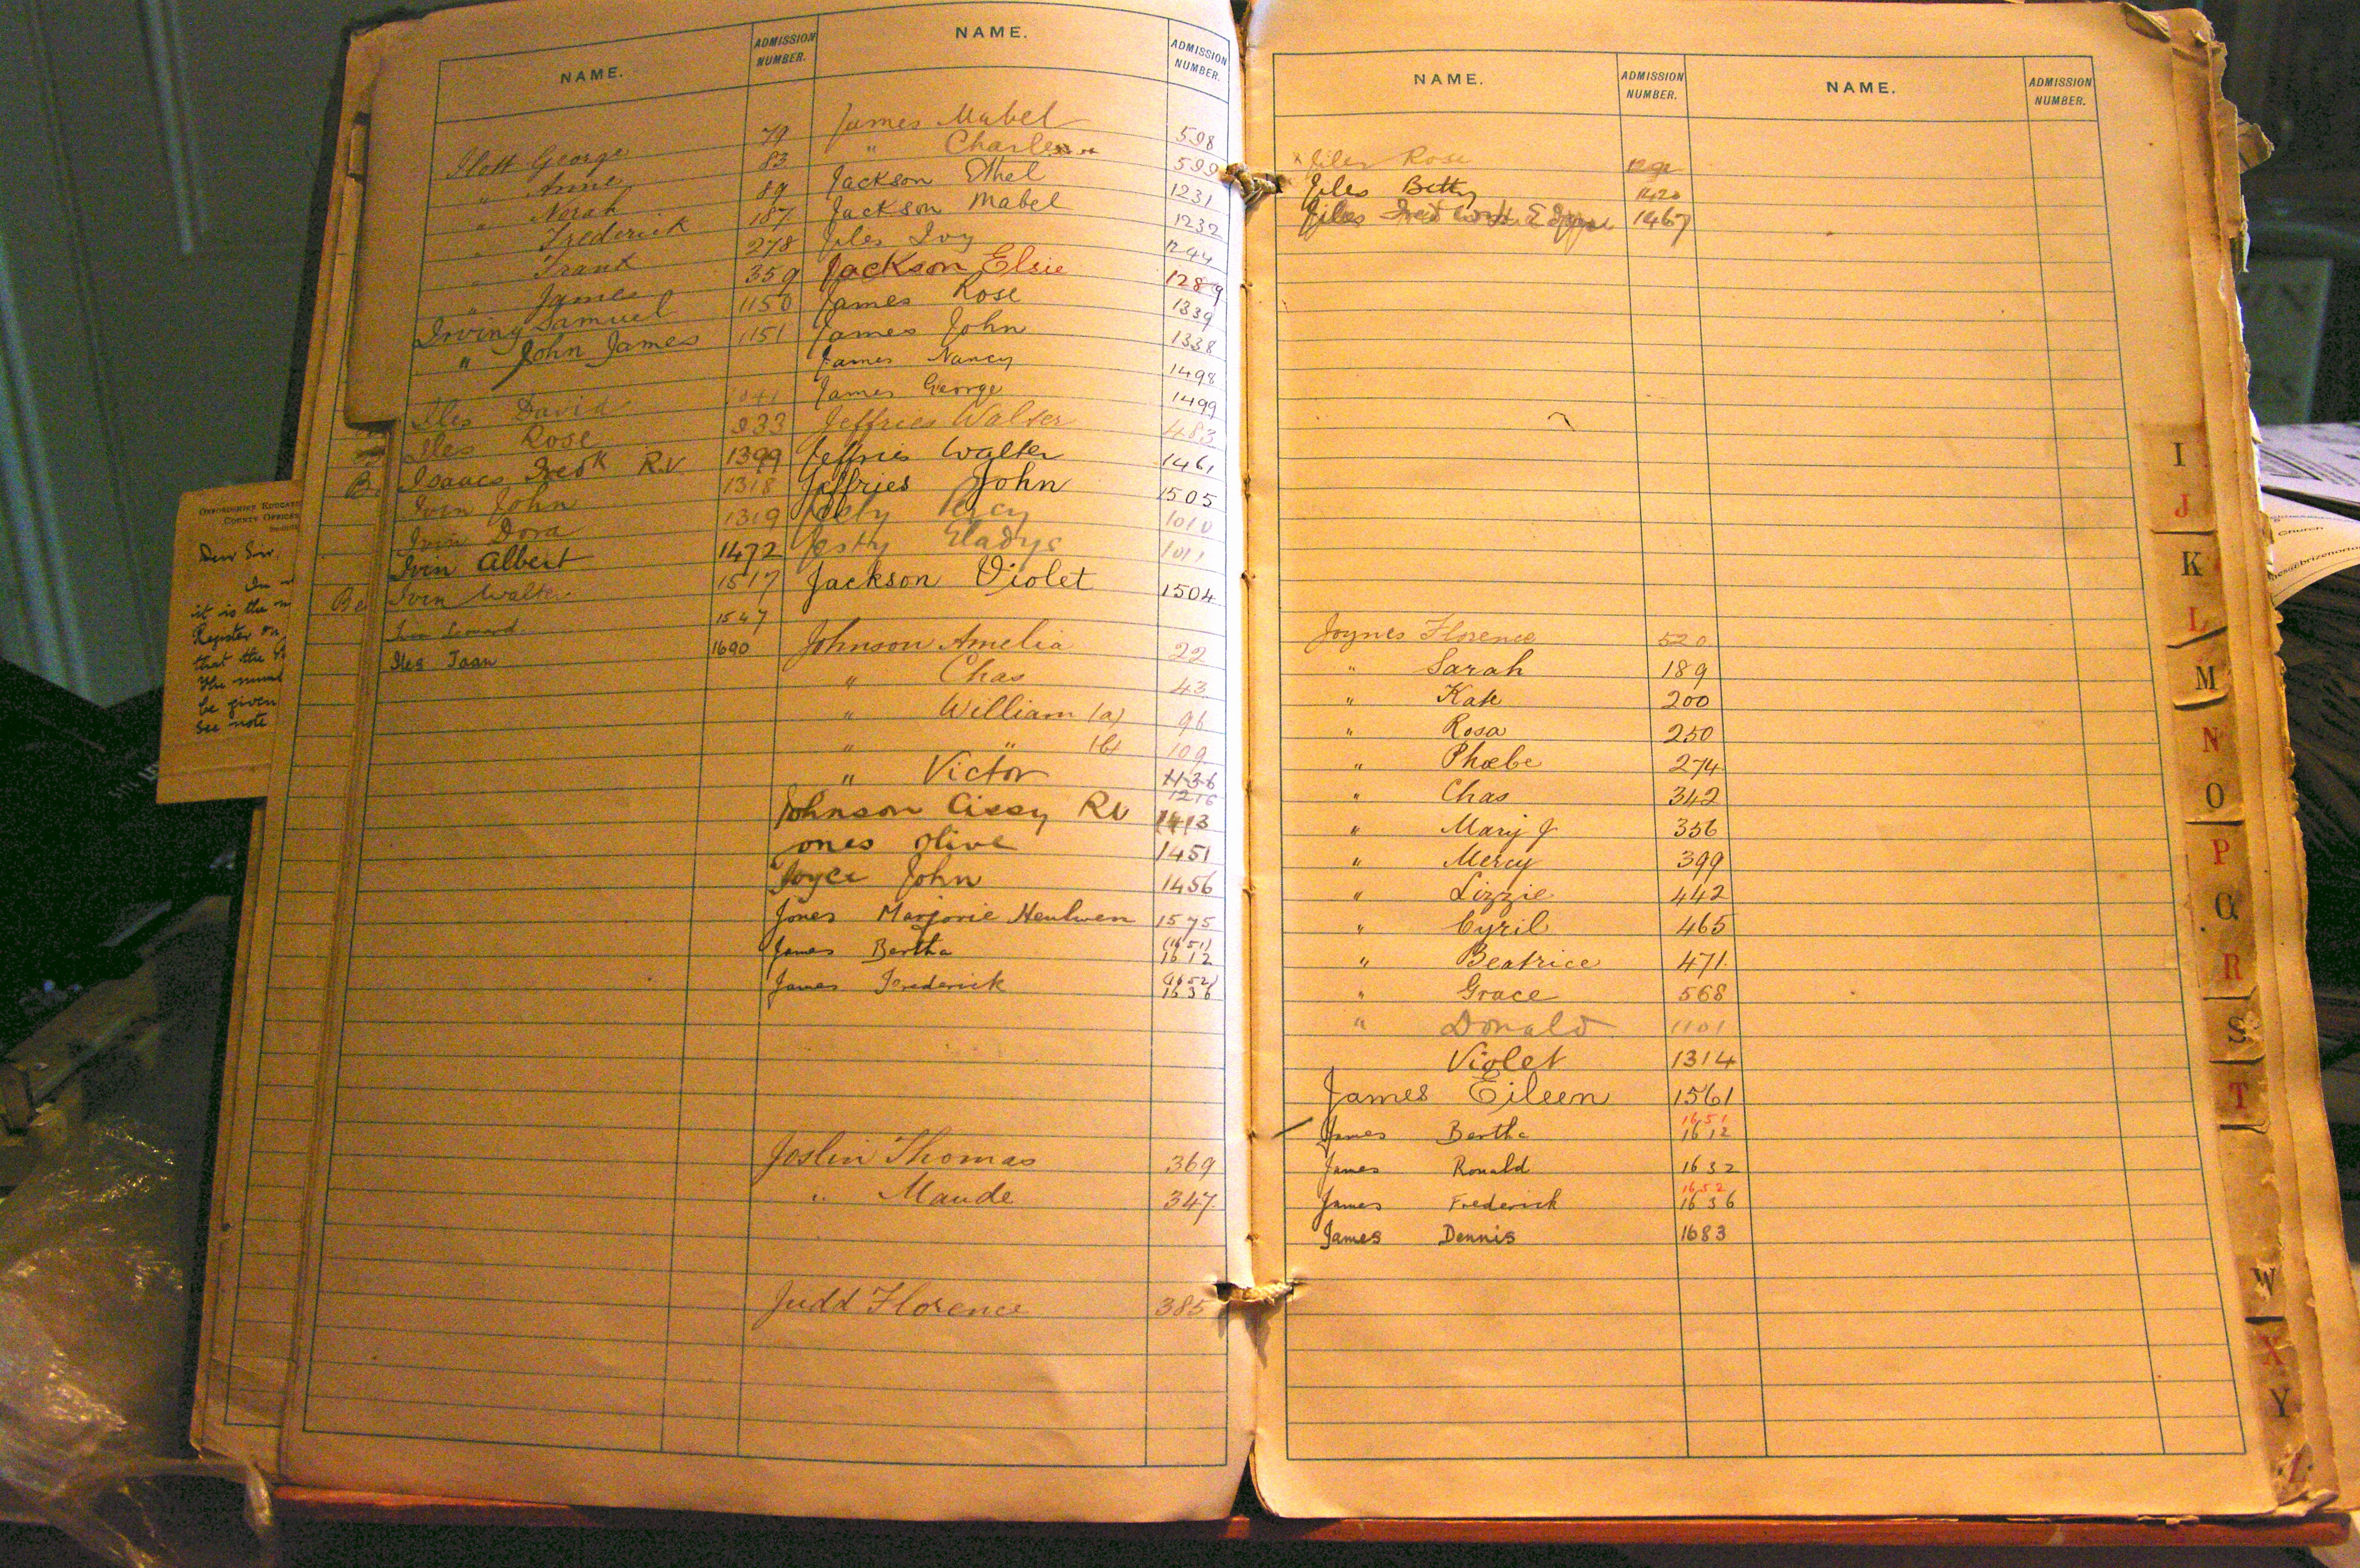 NAME.
ADMISSION NUMBER.
Ilott George 79
" Anne 83
" Norah 89
" Frederick 187
" Frank 278
" James 359
Irving Samuel 1150
" John James 1151
Iles David 1041
Iles Rose 933
Isaacs Fredk R.V. 1399
Ivin John 1318
Ivin Dora 1319
Ivin Albert 1472
Ivin Walter 1517
1547
Iles Joan 1690
NAME.
ADMISSION NUMBER.
James Mabel 598
" Charles 599
Jackson Ethel 1231
Jackson Mabel 1232
Jiles Ivy 1244
Jackson Elsie 1289
James Rose 1339
James John 1338
James Nancy 1498
James George 1499
Jeffries Walter 483
Jeffries Walter 1461
Jeffries John 1505
Percy 1010
Jesty Gladys 1011
Jackson Violet 1504
Johnson Amelia 22
" Chas 43
" William (a) 96
" " (b) 109
" Victor 436
1216
Johnson Cissy RV 1413
ones Olive 1451
Joyce John 1456
Jones Marjorie 1575
James Bertha (1651) 1612
James Frederick (1652) 1636
Joslin Thomas 369
" Maude 347
Judd Florence 385
NAME.
ADMISSION NUMBER.
Jiles Rose
Jiles Betty 1420
Jiles 1467
Joynes Florence 520
" Sarah 189
" Kate 200
" Rosa 250
" Phœbe 274
" Chas 342
" Mary J 356
" Mercy 399
" Lizzie 442
" Cyril 465
" Beatrice 471
" Grace 568
" Donald 1101
Violet 1314
James Eileen 1561
James Bertha 1651 1612
James Ronald 1632
James Frederick 1652 1636
James Dennis 1683
NAME.
ADMISSION NUMBER.
I
J
K
L
M
N
O
P
Q
R
S
T
W
X
Y
Z
OXFORDSHIRE EDUCAT
COUNTY OFFICES
Dear Sir,
it is the
Register on
that the
The
be given
See note
Church